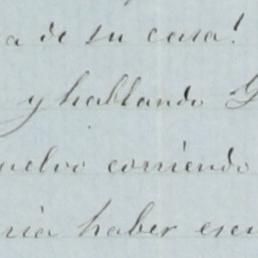 a de su casa!
y hablando G
uelvo corriendo
ria haber escu